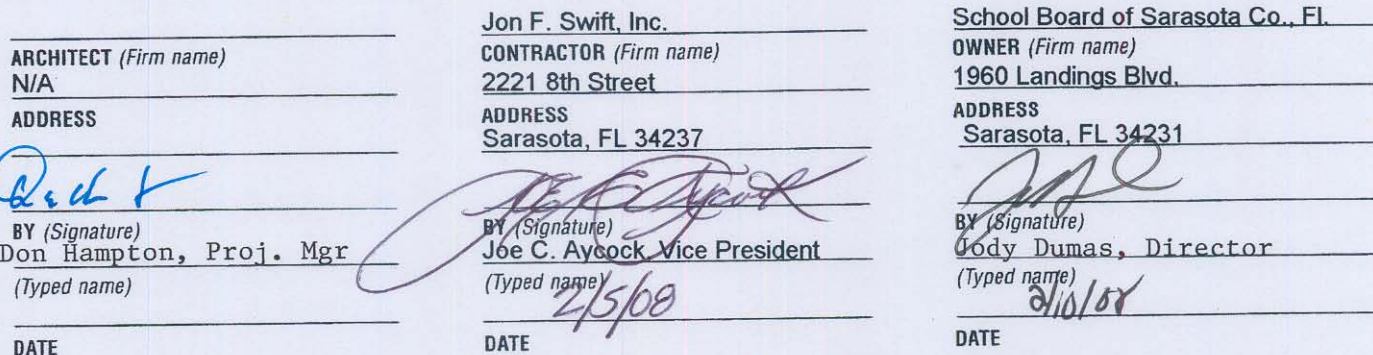 ARCHITECT (Firm name)
N/A
ADDRESS
BY (Signature)
Don Hampton, Proj. Mgr
(Typed name)
DATE
Jon F. Swift, Inc.
CONTRACTOR (Firm name)
2221 8th Street
ADDRESS
Sarasota, FL 34237
BY (Signature)
Joe C. Aycock, Vice President
(Typed name)
2/5/08
DATE
School Board of Sarasota Co., Fl.
OWNER (Firm name)
1960 Landings Blvd.
ADDRESS
Sarasota, FL 34231
BY (Signature)
Jody Dumas, Director
(Typed name)
DATE